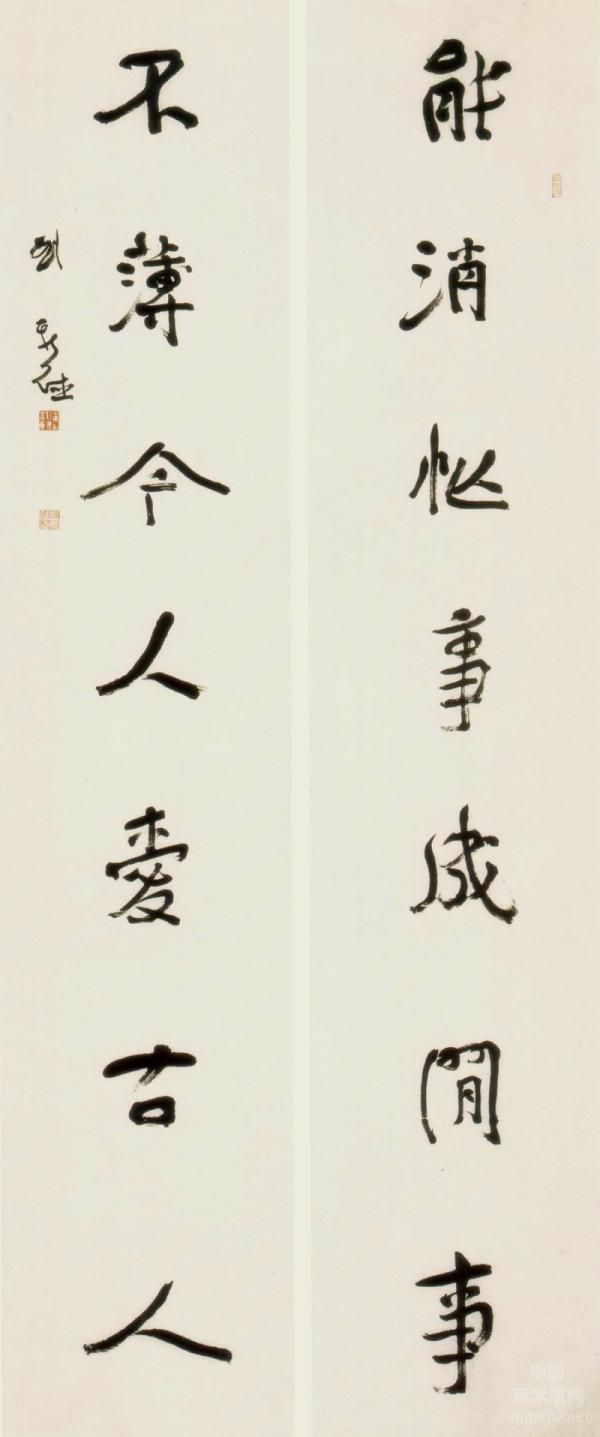 能消忙事成閒事
不薄今人愛古人
劉新德
中国
美术家网